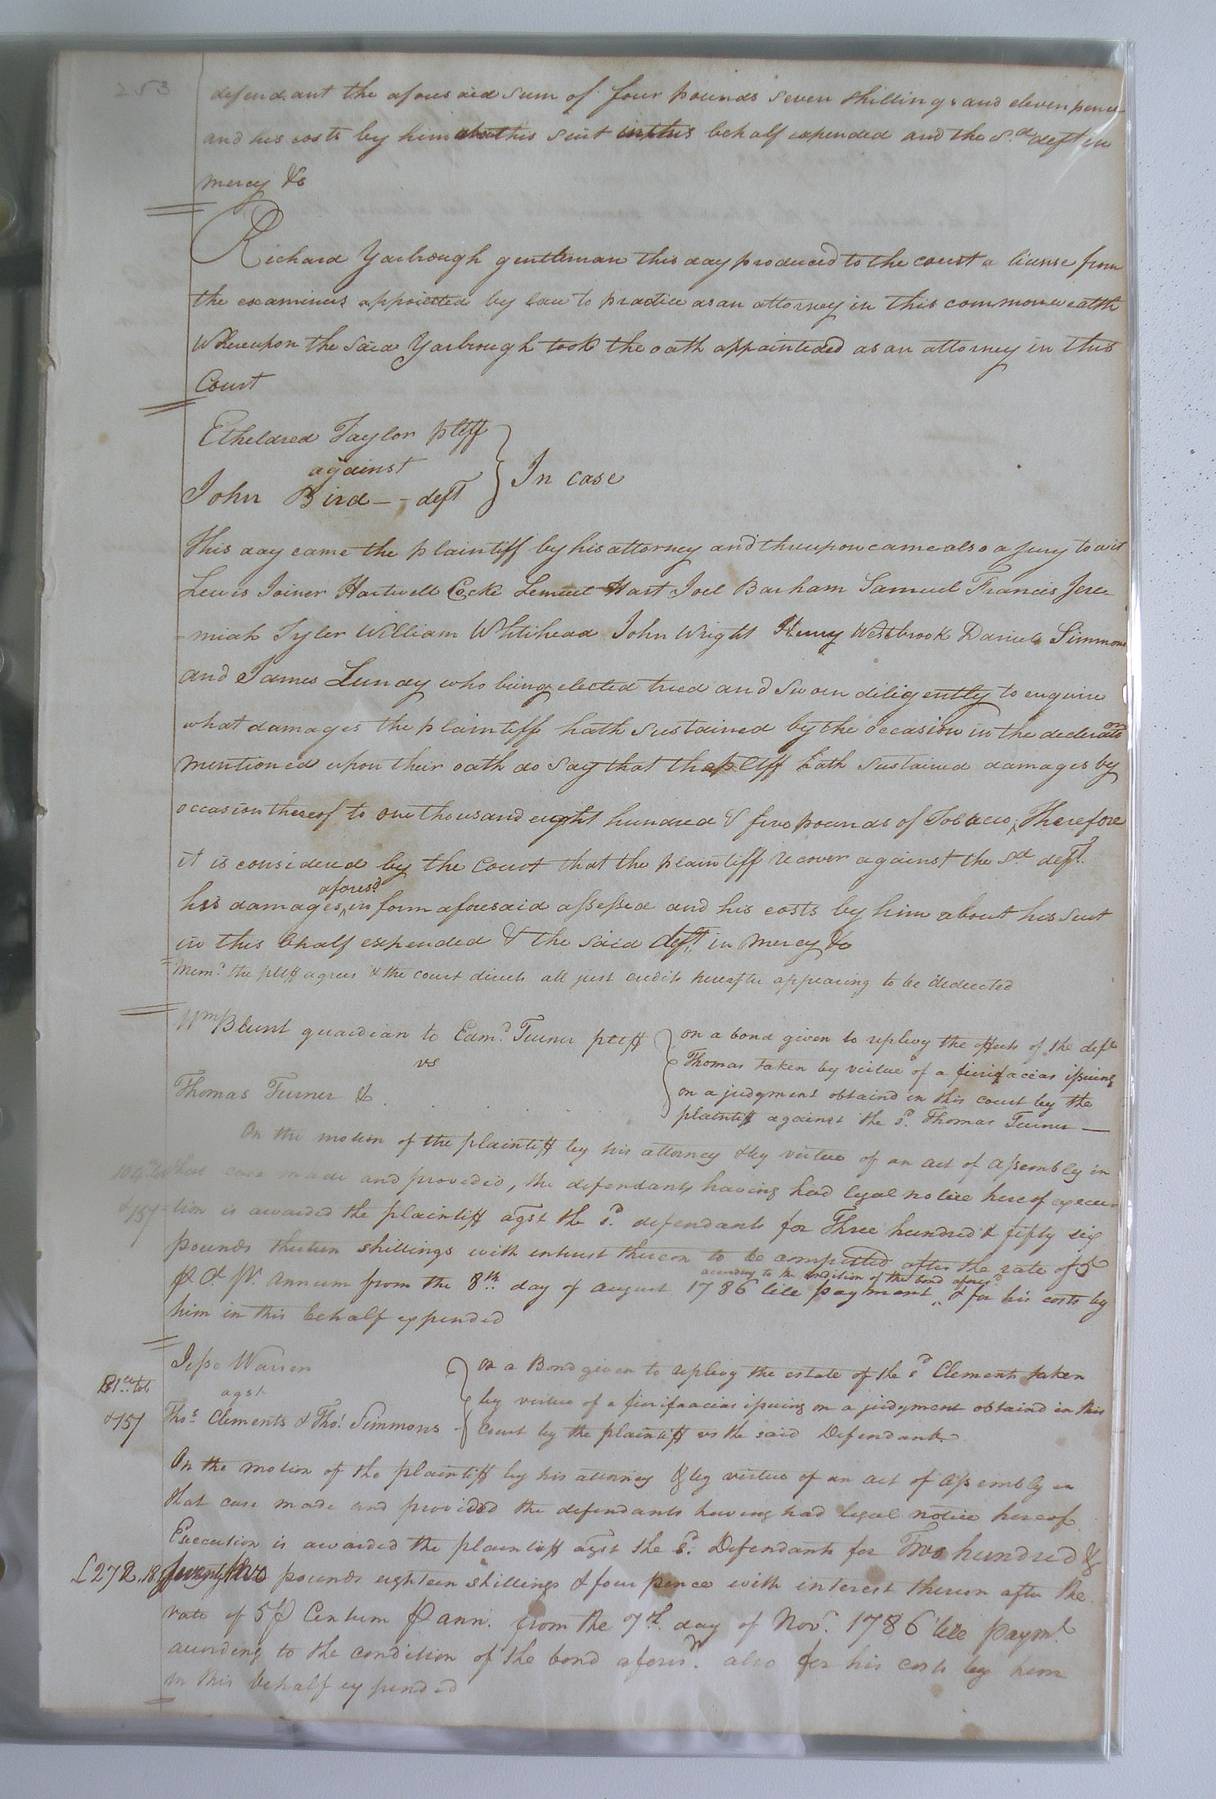 253
defendant the aforesaid sum of four pounds seven shillings and eleven pence
and his costs by him about his suit in this behalf expended and the Sd deft in
mercy &c
Richard Yarbrough gentleman this day produced to the court a license from
the examiners appointed by law to practice as an attorney in this commonwealth
Whereupon the said Yarbrough took the oath appointeded as an attorney in this
Court
Etheldred Taylor pltff
against
John Bird -- deft
In case
This day came the plaintiff by his attorney and thereupon came also a Jury to wit
Lewis Joiner Hartwell Cocke Lemuel Hart Joel Barham Samuel Francis Jere-
-miah Tyler William Whitihead John Wright Henry Westbrook Daniel Simmons
and James Lundy who being elected tried and sworn diligently to enquire
what damages the plaintiff hath sustained by the occasion in the declaration
mentioned upon their oath do say that the pltff hath sustained damages by
occasion thereof to one thousand eight hundred & five pounds of Tobacco, Therefore
it is considered by the Court that the plaintiff recover against the sd deft.
his damages aforesd in form aforesaid assessed and his costs by him about his suit
in this behalf expended & the said deft. in mercy &c
Memo. the pltff agrees & the court directs all just credits hereafter appearing to be deducted
Wm Blunt guardian to Edmd. Turner pltff
vs
Thomas Turner &c.
on a bond given to replevy the effects of the deft
Thomas taken by virtue of a fierifacias issuing
on a judgment obtaind in this court by the
plaintiff against the sd. Thomas Turner
On the motion of the plaintiff by his attorney & by virtue of an act of assembly in
that case made and provided, the defendants having had legal notice hereof execu-
& 157
tion is awarded the plaintiff agst the sd. defendants for Three hundred & fifty six
pounds thirteen shillings with interest thereon to be computed after the rate of 5
P Ct pr. Annum from the 8th day of august 1786 till payment according to the condition of the bond aforesd & for his costs by
him in this behalf expended
Jesse Warren
agst
Thos. Clements & Thos. Simmons
on a Bond given to replevy the estate of the sd Clements taken
by virtue of a fierifacias issuing on a judgment obtaind in this
Court by the plaintiff vs the said Defendant.
& 157
On the motion of the plaintiff by his attorney & by virtue of an act of assembly in
that case made and provided the defendants having had legal notice hereof
Execution is awarded the plaintiff agst the sd. Defendants for Two hundred &
£272.18
seventy two pounds eighteen shillings & four pence with interest thereon after the
rate of 5 P Centum P ann. from the 7th. day of Novr. 1786 till paymt.
according to the condition of the bond aforesd. also for his costs by him
in this behalf expended